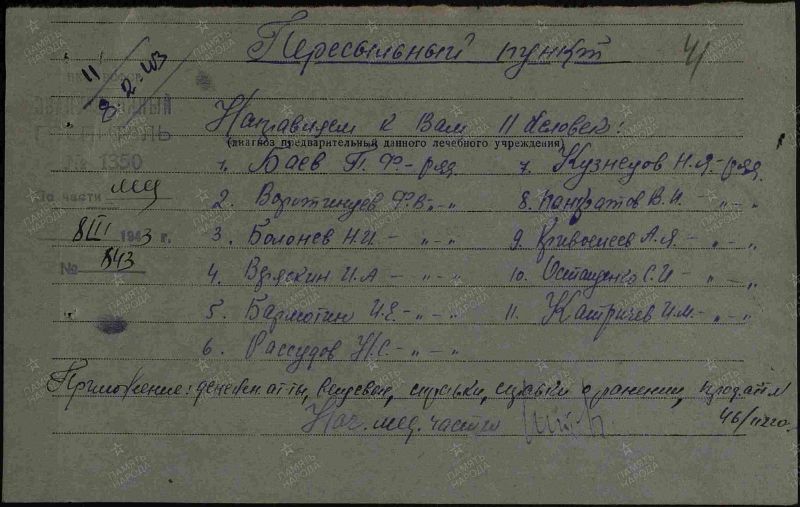 Пересыльный пункт
41
11
8 2.43
№ 1350
По части мед
8/III 1943 г.
№ 843
Направляем к Вам 11 человек:
(диагноз предварительный данного лечебного учреждения)
1. Баев П.Ф. - ряд.
2. Воротинцев Ф.В. - " -
3. Болонев Н.И. - " -
4. Вряскин И.А. - " -
5. Бармотин И.Е. - " -
6. Рассудов Н.С. - " -
7. Кузнецов Н.Я. - ряд.
8. Панкратов В.И. - " -
9. Кривошеев А.Я. - " -
10. Остащенко С.И. - " -
11. Катричев И.М. - " -
Приложение: денежн. атты, вещевые, справки, справки о ранении, прод. атт
Нач. мед. части
ПАМЯТЬ НАРОДА